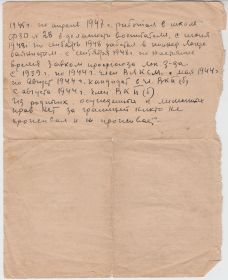 по апрель 1947 г. работал в школе
ФЗО № 28 в должности воспитателя, с июня
по сентябрь 1948 работал в
с сентября 1948 г. по настоящее
время Завком профсоюза
С 1939 г. по 1944 г. член ВЛКСМ. с мая 1944 г.
по август 1944 г. кандидат в чл. ВКП(б)
с августа 1944 г. член ВКП(б)
Из родных, осужденных и лишенных
прав нет за границей никто не
проживал и не проживает.